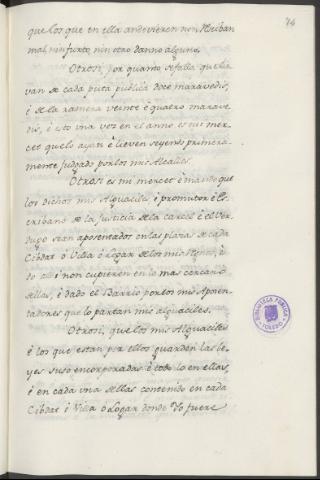 74
que los que en ella andovieren non reciban
mal, nin furto, nin otro danno alguno.
Otrosi, por quanto se falla que lle
van de cada puta publica doce maravedis,
é de la ramera veinte é quatro marave
dis, é esto una vez en el anno es mi mer
cet que lo ayan é lieven seyendo primera-
mente judgado por los mis Alcalles.
Otrosi es mi mercet é mando que
los dichos mis Alguaciles é promutor é Es
cribano de la Justicia de la carcel é el Ver
dugo sean aposentados en las plazas de cada
Cibdat ó Villa ó Logar de los mis Regnos, é
do alli non cupieren en lo mas cercano
dellas, é dado el Barrio por los mis Aposen
tadores que lo partan mis alguaciles.
Otrosi, que los mis Alguaciles
é los que estan por ellos guarden las le-
yes suso encorporadas é todo lo en ellas,
é en cada una dellas contenido en cada
Cibdat é Villa ó Logar donde Yo fuere
BIBLIOTECA PUBLICA
TOLEDO